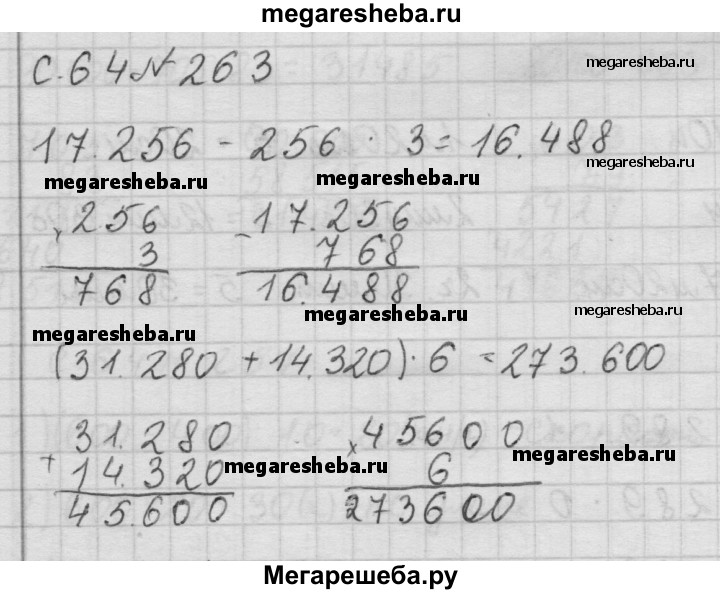 megaresheba.ru
с.64 № 263
megaresheba.ru
17.256 - 256 · 3 = 16.488
megaresheba.ru
megaresheba.ru
megaresheba.ru
× 256
3
768
- 17.256
768
16.488
megaresheba.ru
megaresheba.ru
megaresheba.ru
(31.280 + 14.320) · 6 = 273.600
31.280
+ 14.320
45.600
megaresheba.ru
× 45600
6
273600
megaresheba.ru
Мегарешеба.ру